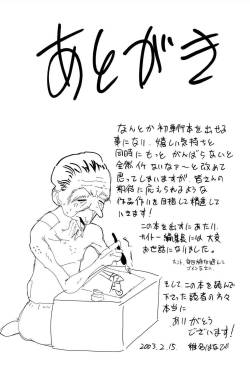 あとがき
なんとか初単行本を出せる
事になり、嬉しい気持ちと
同時にもっとがんばらないと
全然イケないなァ〜と改めて
思ってしまいますが、皆さんの
期待に応えられるような
作品作りを目指して精進して
いきます!
この本を出すにあたり
編集長には大変
お世話になりました。
そしてこの本を読んで
下さった読者の方々
本当に
ありがとう
ございます!
2003.2.15. 椎名はなび